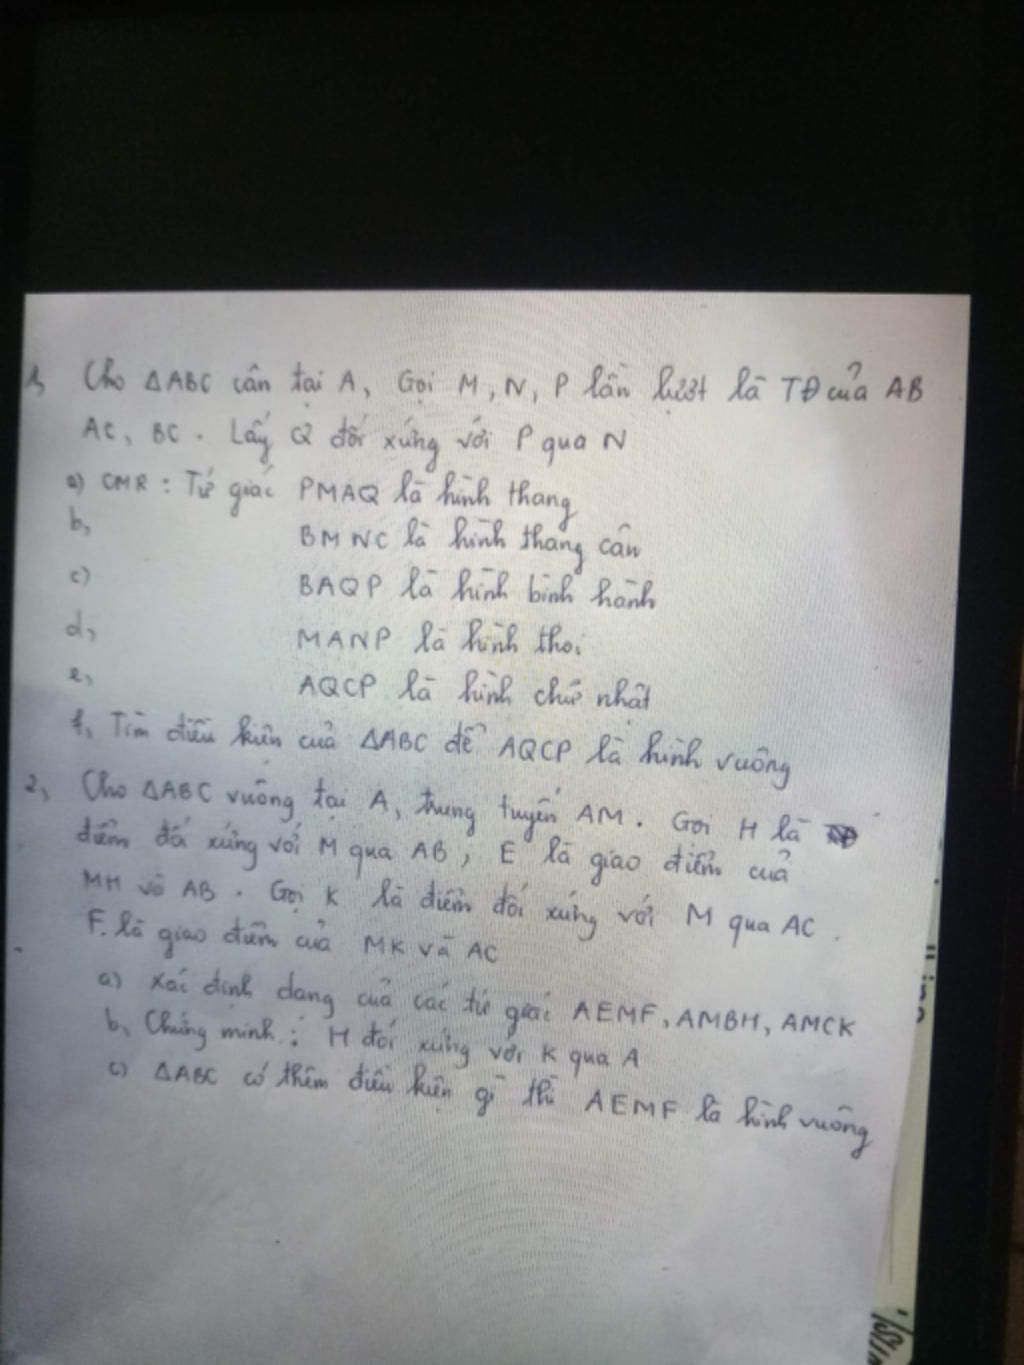 1, Cho ΔABC cân tại A, Gọi M, N, P lần lượt là TĐ của AB
AC, BC. Lấy Q đối xứng với P qua N
a) CMR : Tứ giác PMAQ là hình thang
b, BMNC là hình thang cân
c) BAQP là hình bình hành
d, MANP là hình thoi
e, AQCP là hình chữ nhật
f, Tìm điều kiện của ΔABC để AQCP là hình vuông
2, Cho ΔABC vuông tại A, trung tuyến AM. Gọi H là
điểm đối xứng với M qua AB, E là giao điểm của
MH và AB. Gọi K là điểm đối xứng với M qua AC.
F. là giao điểm của MK và AC
a) Xác định dạng của các tứ giác AEMF, AMBH, AMCK
b, Chứng minh : H đối xứng với K qua A
c) ΔABC có thêm điều kiện gì thì AEMF là hình vuông